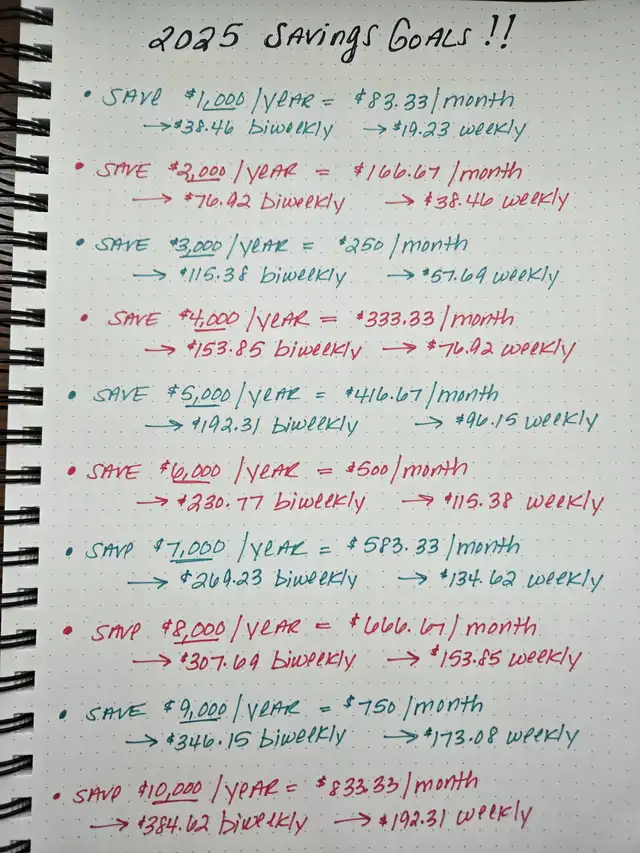 2025 SAVINGS GOALS!!
• SAVE $1,000/YEAR = $83.33/month
→ $38.46 biweekly → $19.23 weekly
• SAVE $2,000/YEAR = $166.67/month
→ $76.92 biweekly → $38.46 weekly
• SAVE $3,000/YEAR = $250/month
→ $115.38 biweekly → $57.69 weekly
• SAVE $4,000/YEAR = $333.33/month
→ $153.85 biweekly → $76.92 weekly
• SAVE $5,000/YEAR = $416.67/month
→ $192.31 biweekly → $96.15 weekly
• SAVE $6,000/YEAR = $500/month
→ $230.77 biweekly → $115.38 weekly
• SAVE $7,000/YEAR = $583.33/month
→ $269.23 biweekly → $134.62 weekly
• SAVE $8,000/YEAR = $666.67/month
→ $307.69 biweekly → $153.85 weekly
• SAVE $9,000/YEAR = $750/month
→ $346.15 biweekly → $173.08 weekly
• SAVE $10,000/YEAR = $833.33/month
→ $384.62 biweekly → $192.31 weekly